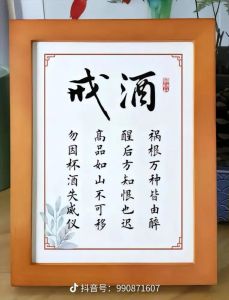 戒酒
祸根万种皆由醉
醒后方知恨也迟
高品如山不可移
勿因杯酒失威仪
抖音号：990871607